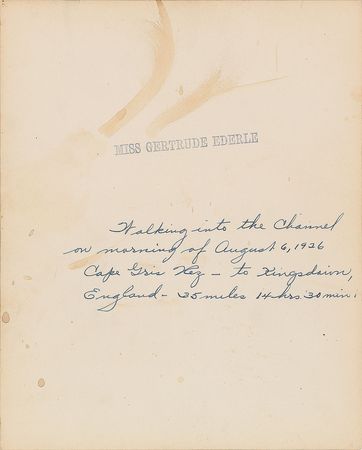 MISS GERTRUDE EDERLE
Walking into the Channel
on morning of August 6, 1926
Cape Gris Nez - to Kingsdown,
England - 35 miles 14 hrs 30 min.